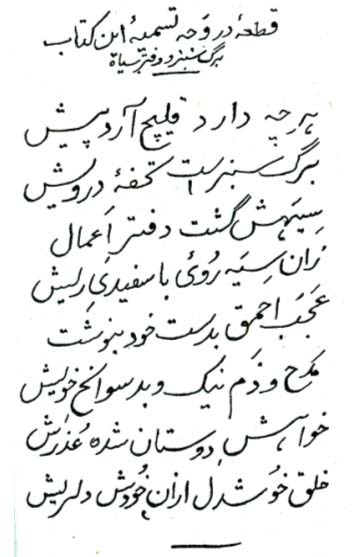 قطعۂ در وجہ تسمیۂ این کتاب
برگ سبز و دفتر سیاہ
ہرچہ دارد قلیچ آرد پیش
برگ سبز است تحفۂ درویش
سیہش گشت دفتر اَعمال
زان سِیَہ رُوئی با سفیدیِ ریش
عَجَب احمق بدست خود بنوشت
مَدح و ذَم نیک و بد سوانح خویش
خواہشِ دوستان شدہ عُذرَش
خلق خوُشدل ازان خُودَش دلریش